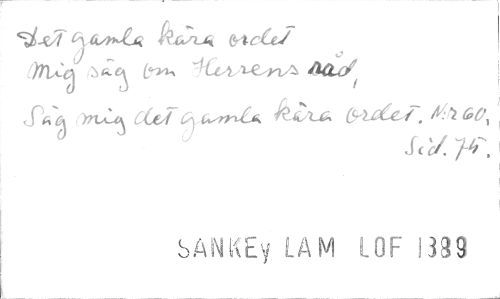 Det gamla kära ordet
Mig säg om Herrens råd,
Säg mig det gamla kära ordet. N:r 60,
Sid. 75.
SANKEy LAM LOF 1889